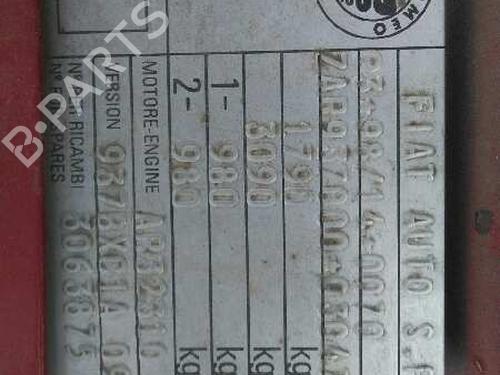 MEO
FIAT AUTO S.P
e3*98/14*0070
ZAR937000*0304
1790 kg
3090 kg
1- 980 kg
2- 980 kg
MOTORE-ENGINE AR32310
VERSION 937BXC1A 09
N° PER RICAMBI
N° F SPARES 3063875
B-PARTS